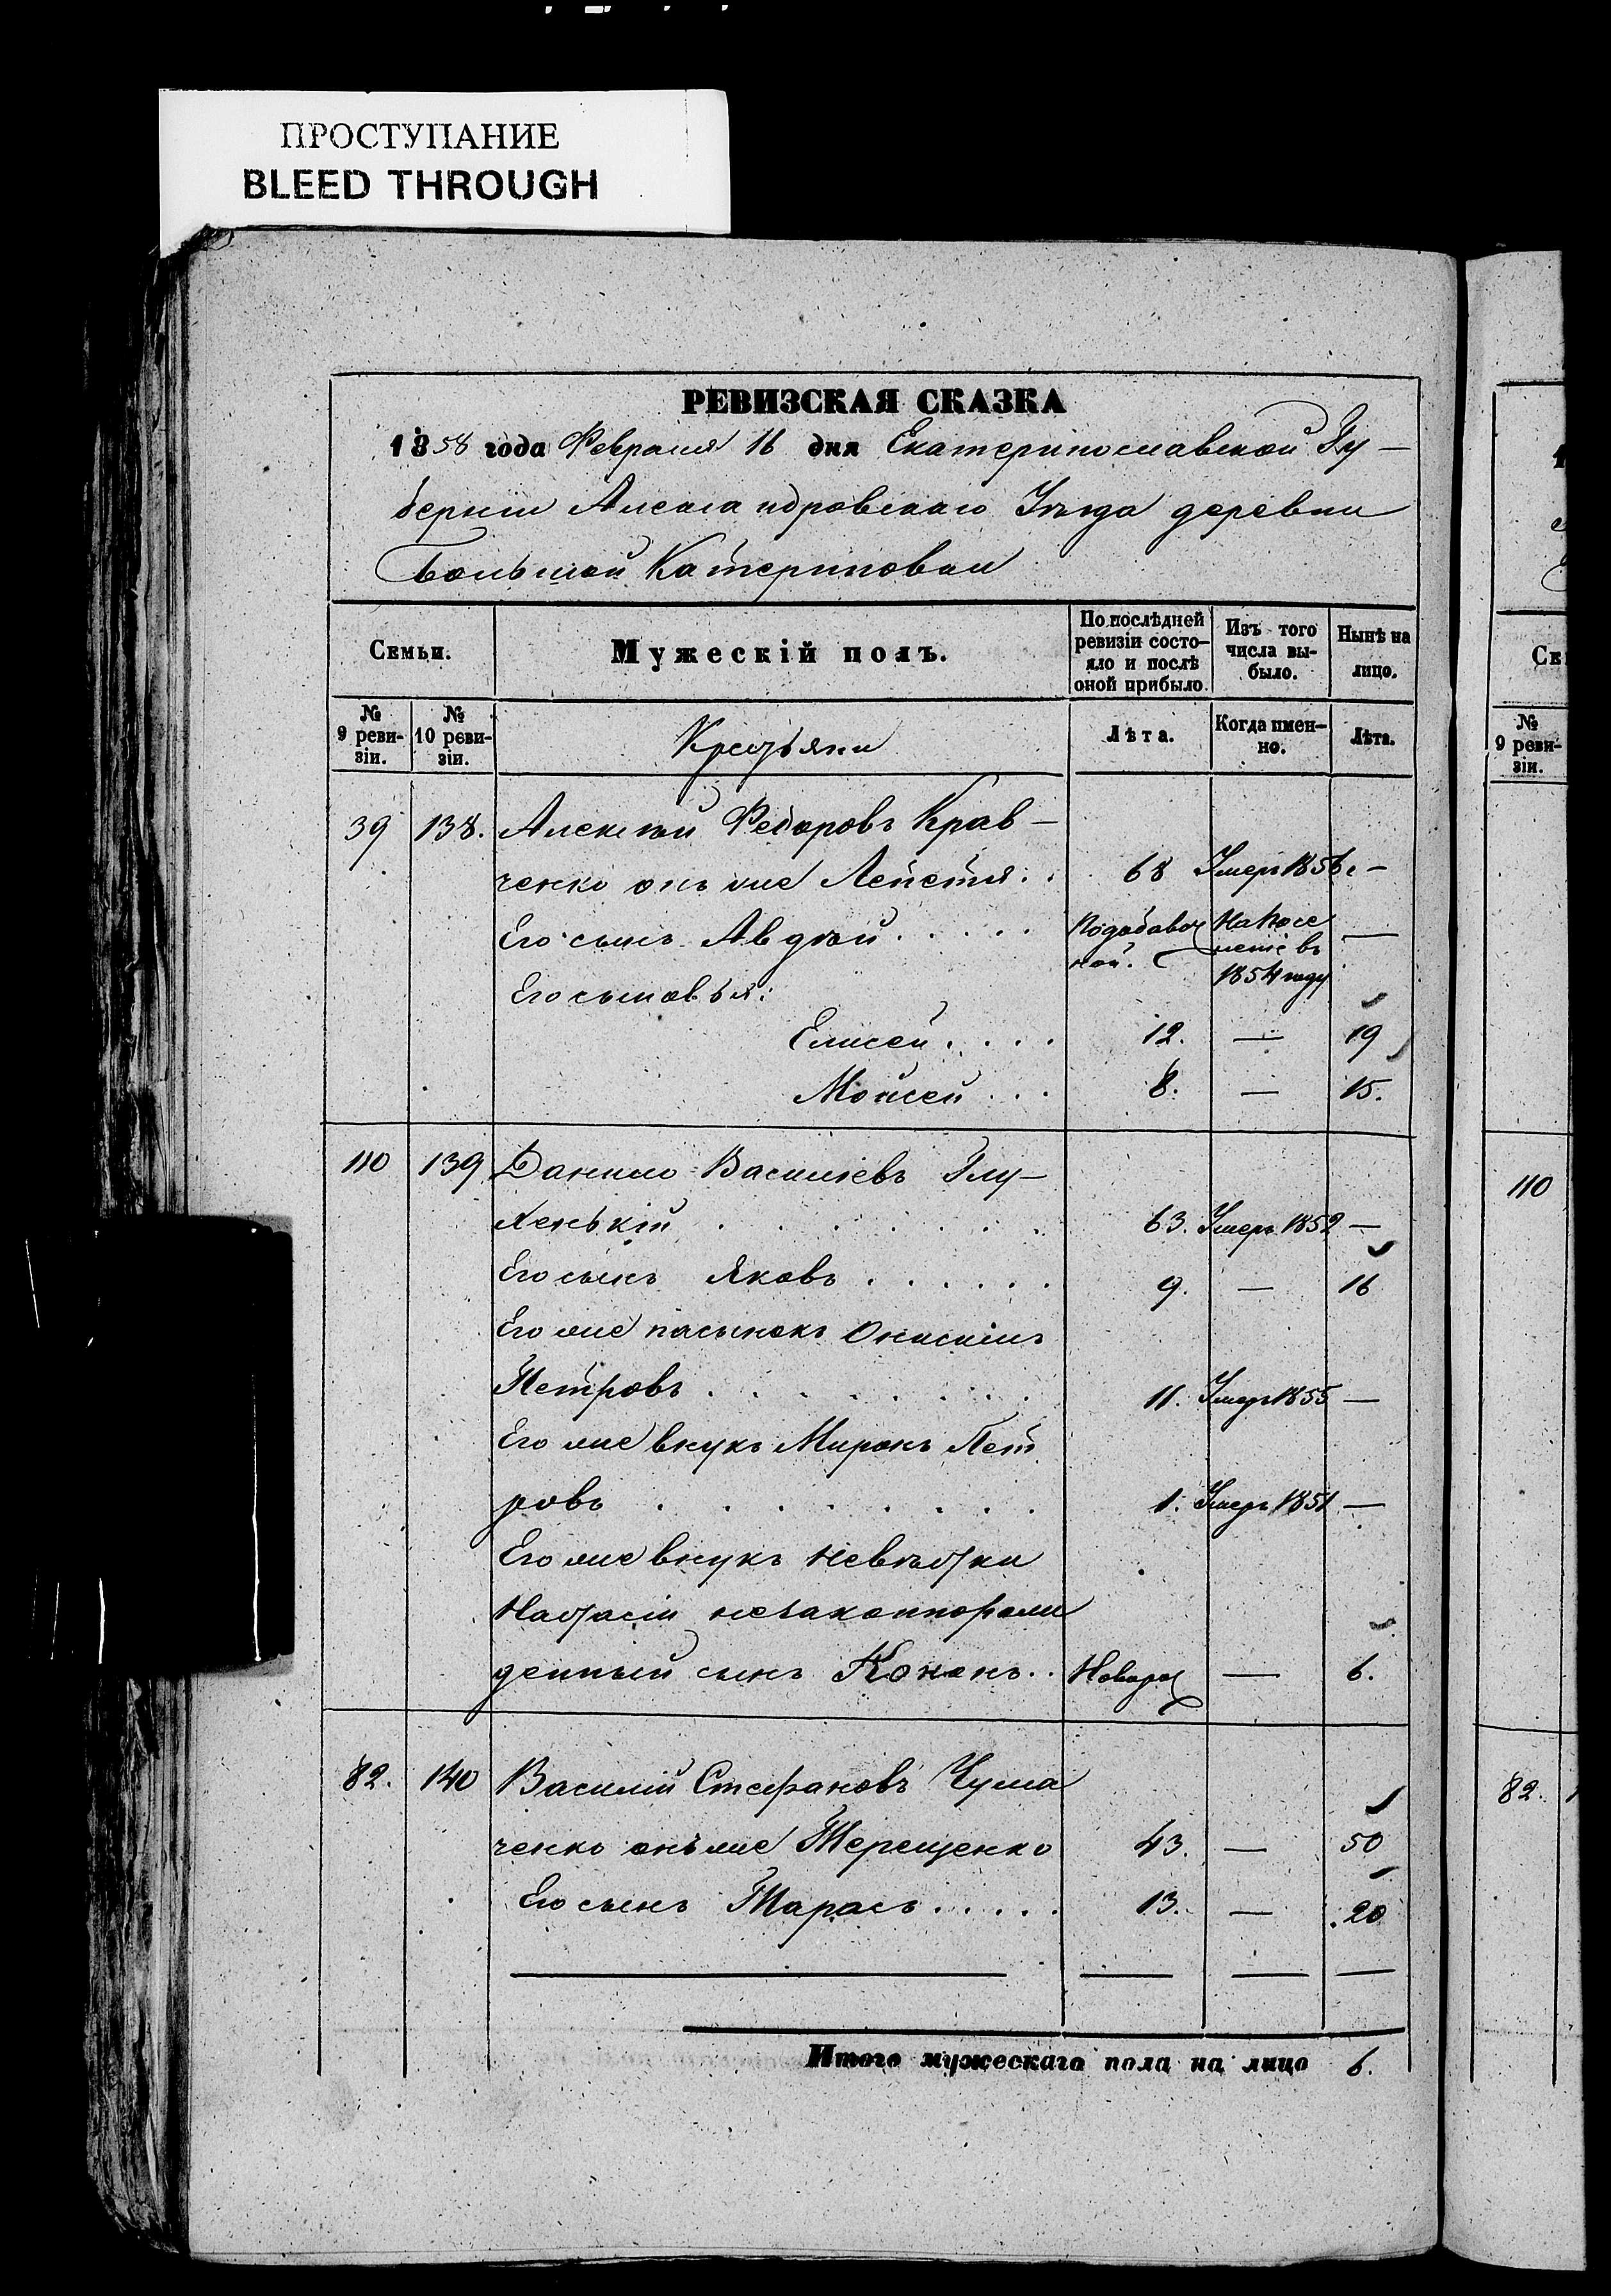 ПРОСТУПАНИЕ
BLEED THROUGH
РЕВИЗСКАЯ СКАЗКА
1858 года Февраля 16 дня Екатеринославской Гу-
берніи Александровскаго Уѣзда деревни
Большой Катериновки
Семьи.
Мужескій полъ.
По послѣдней ревизіи состояло и послѣ оной прибыло.
Изъ того числа выбыло.
Нынѣ на лицо.
№ 9 реви-зіи.
№ 10 реви-зіи.
Крестьяни
Лѣта.
Когда имен-но.
Лѣта.
39 138. Алексѣй Федоровъ Крав-
ченко онъ же Лепетя. 68 Умеръ 1856. —
Его сынъ Авдѣй . . . . . На посе
леніе въ
1854 году —
Его сыновья:
Елисей . . . . 12. — 19
Мойсей . . . 8. — 15.
110 139 Данило Василіевъ Глу-
хенькій . . . . . . . 63. Умеръ 1852 —
Его сынъ Яковъ . . . . . . 9. — 16
Его же пасынокъ Онисимъ
Петровъ . . . . . . . . 11. Умеръ 1855 —
Его же внукъ Миронъ Пет
ровъ . . . . . . . . 1. Умеръ 1851 —
Его же внукъ невѣстки
Настасіи незаконнорож
денный сынъ Кононъ . . Новорож — 6.
82. 140 Василій Стефановъ Чума
ченко онъ же Терещенко 43. — 50
Его сынъ Тарасъ . . . . . 13. — 20
Итого мужескаго пола на лицо 6.
1
Се
№
9 реви-
зіи.
110
82.